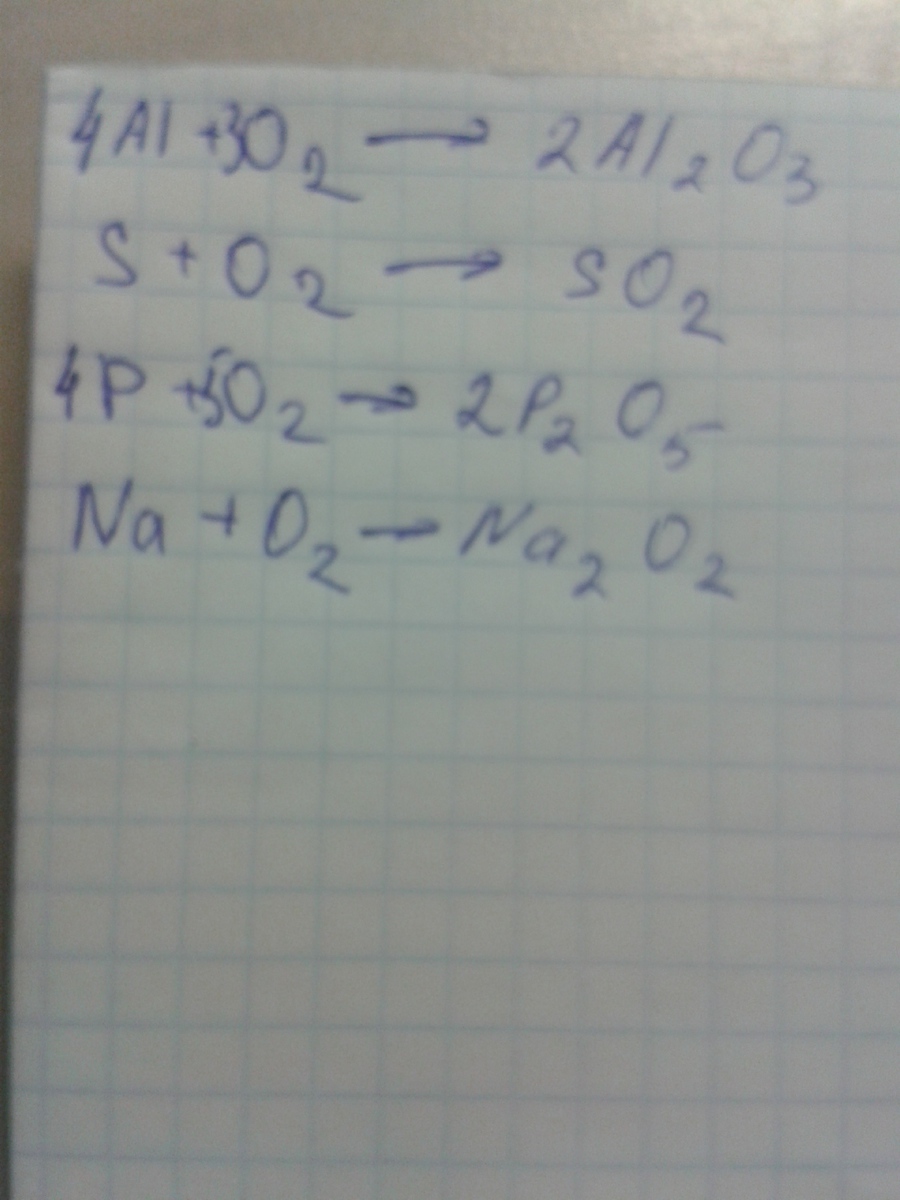 4Al + 3O₂ → 2Al₂O₃
S + O₂ → SO₂
4P + 5O₂ → 2P₂O₅
Na + O₂ → Na₂O₂